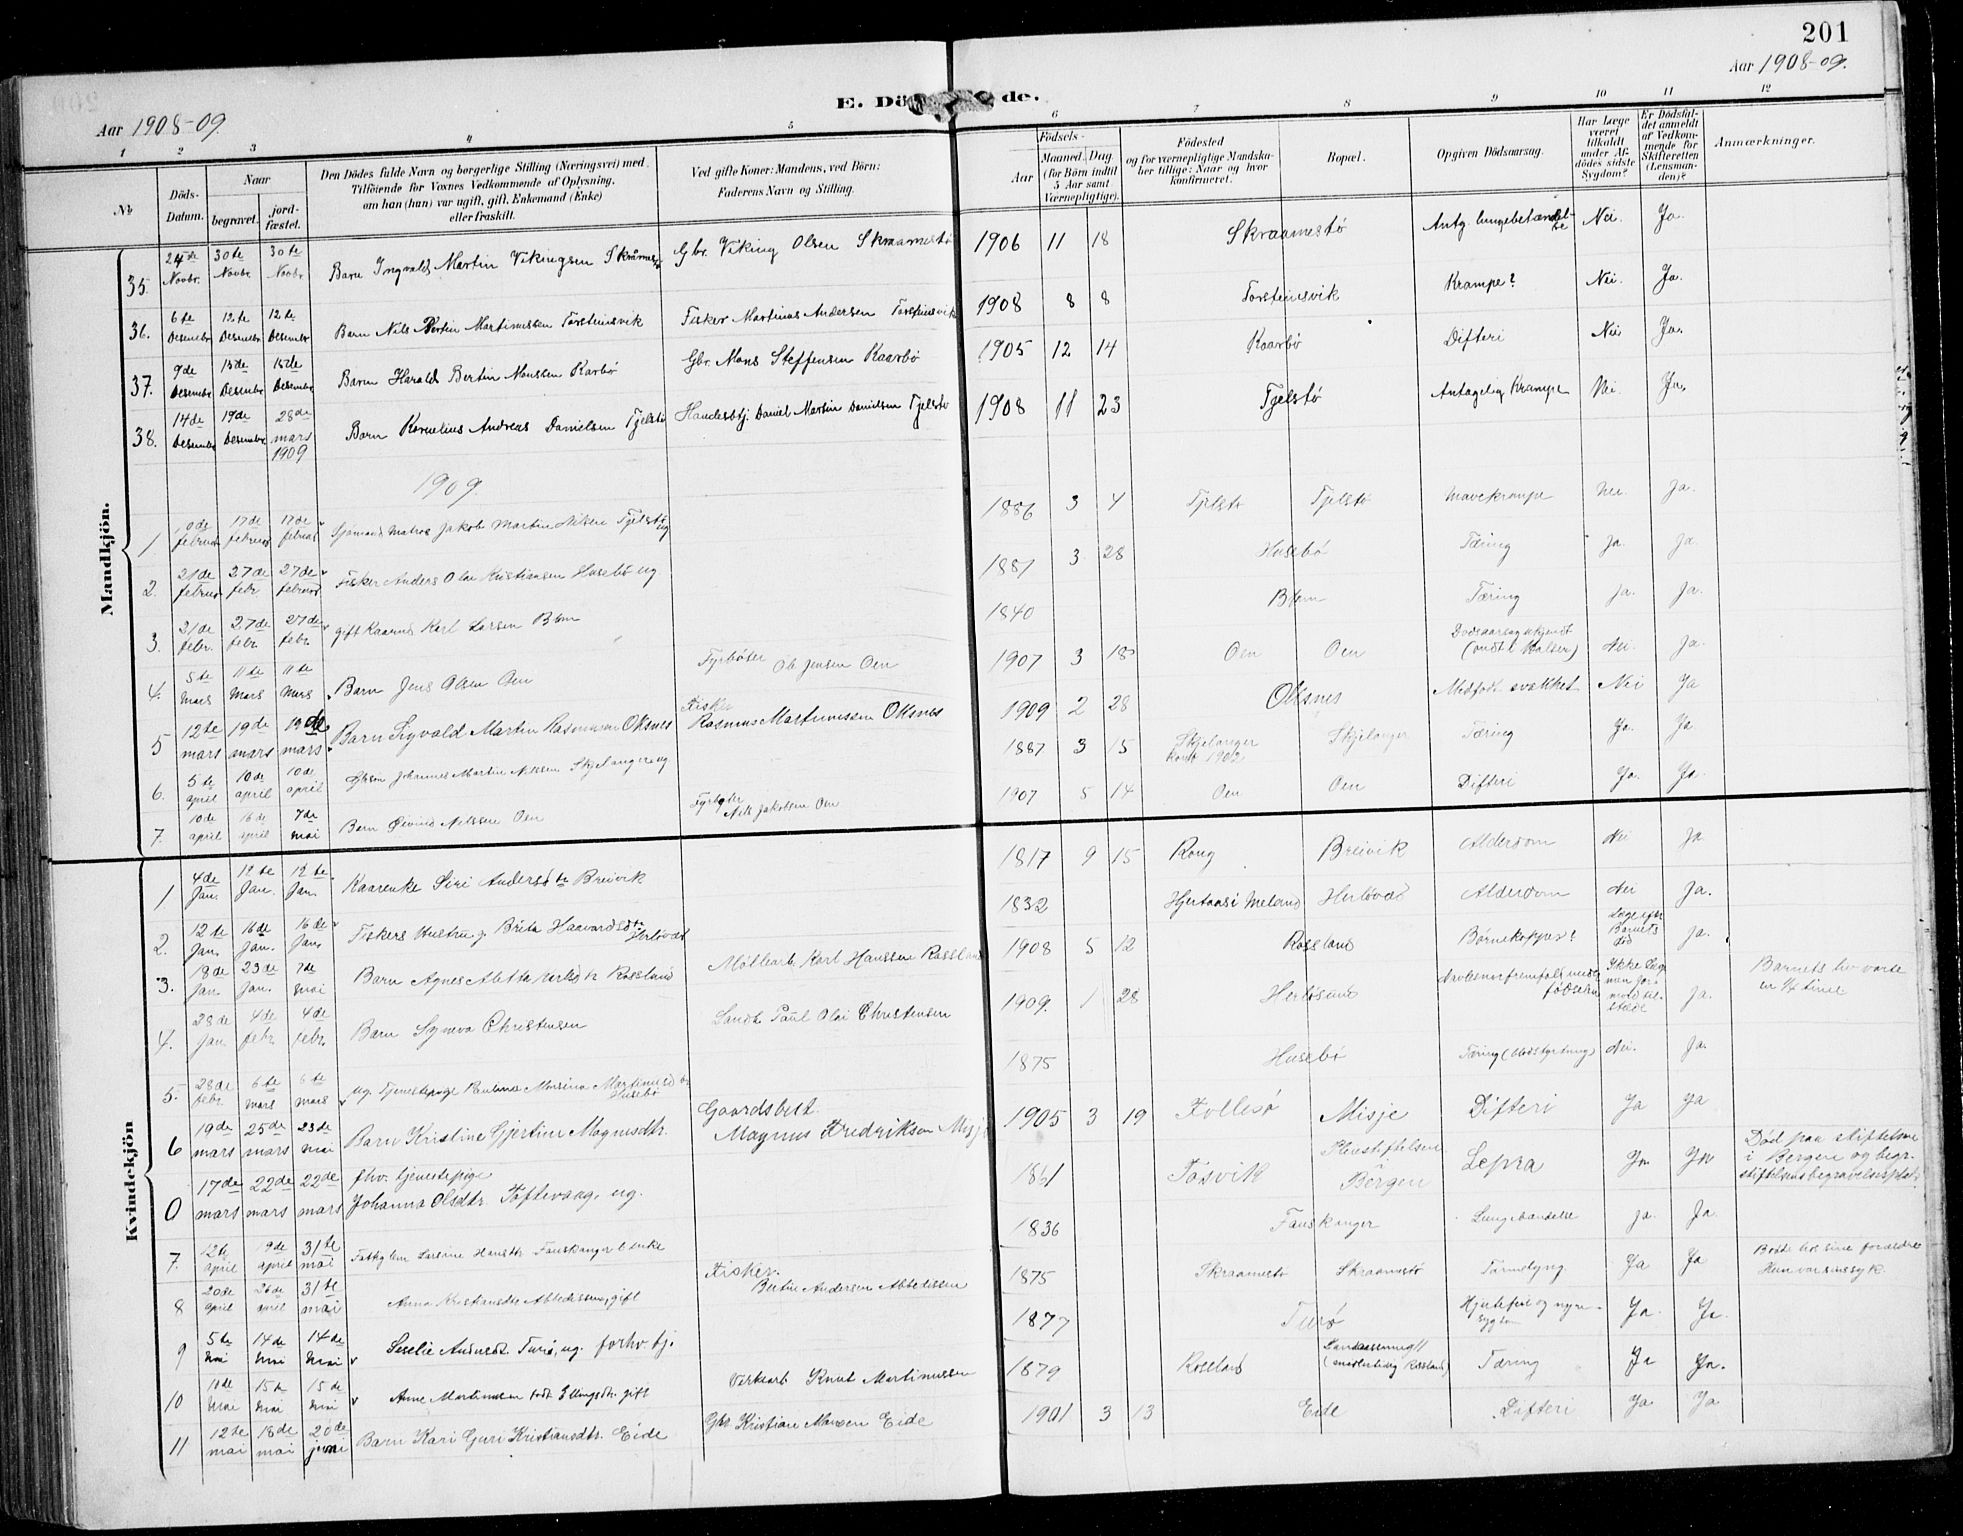 201
Aar 1908-09.
E. Dö de.
Aar 1908-09
1 2 3 4 5 6 7 8 9 10 11 12
№
Döds-Datum.
Naar
begravet.
jord-fæstet.
Den Dödes fulde Navn og borgerlige Stilling (Næringsvei) med
Tilföiende for Voxnes Vedkommende af Oplysning,
om han (hun) var ugift, gift, Enkemand (Enke)
eller fraskilt.
Ved gifte Koner: Mandens, ved Börn:
Faderens Navn og Stilling.
Födsels-
Aar
Maaned. Dag.
(for Börn indtil
5 Aar samt
Værnepligtige).
Födested
og for værnepligtige Mandska-
ber tillige: Naar og hvor
konfirmeret.
Bopæl.
Opgiven Dödsaarsag.
Har Læge
været
tilkaldt
under Af-
dödes sidste
Sygdom?
Er Dödsfal-
det anmeldt
af Vedkom-
mende for
Skifteretten
(Lensman-
den)?
Anmærkninger.
Mandkjön.
35. 24de Novbr. 30te Novbr. 30te Novbr. Barn Ingvald Martin Vikingsen Gbr. Viking Olsen Skraamestø 1906 11 18 Skraamestø Antg. lungebetændelse Nei. Ja.
36. 6te Desember 12te Desember 12te Desember Barn Nils Martinussen Torsteinsvik Fisker Martinus Andersen Torsteinsvik 1908 8 8 Torsteinsvik Krampe? Nei. Ja.
37. 9de Desember 15de Desember 15de Desember Barn Harald Bertin Monssen Karbø Gbr. Mons Steffensen Kaarbø 1905 12 14 Kaarbø Difteri Nei Ja.
38. 14de Desember 19de Desember 28de mars 1909 Barn Kornelius Andreas Danielsen Tjelstø Handelsbtj. Daniel Martin Danielsen Tjelstø 1908 11 23 Tjelstø Antagelig Krampe Nei Ja.
1909.
1 februar 17de februar 17de februar Matros Jakob Martin Nilsen Tjelstø ug 1886 3 4 Tjelstø Tjelstø Mavekrampe Nei. Ja.
2. 21de februar 27de febr 27de februar Fisker Anders Olai Kristiansen Husebø ug. 1881 3 28 Husebø Tæring Ja. Ja.
3. 21de febr. 27de febr. 27de febr. gift Kaarmd Karl Larsen Blom 1840 Blom Tæring Ja. Ja.
4. 5te Mars 11te Mars 11te Mars Barn Jens Olsen Oen Fyrbøter Ole Jensen Oen 1907 3 18 Oen Oen Dødsaarsag ukjendt (ondt i Halsen) Nei. Ja.
5 12te mars 19de mars 19de mars Barn Sigvald Martin Rasmussen Oksnes Fisker Rasmus Martinussen Oksnes 1909 2 28 Oksnes Medfødt svakhet Nei Ja
6. 5te april 10de april 10de april Johannes Martin Nilssen Skjelanger ug 1887 3 15 Skjelanger Konf 1902 Skjelanger Tæring Ja. Ja
7. 10de april 16de april 7de mai Barn Øivind Nilssen Oen Fyrbøter Nils Jakobsen Oen 1907 5 14 Oen Oen Difteri Ja. Ja.
Kvindekjön
1 4de Jan. 12te Jan. 12te Jan. Kaarenke Siri Andersdtr Breivik 1817 9 15 Rong Breivik Alderdom Nei Ja
2. 12te Jan. 16de Jan. 16de Jan. Fiskers Hustru Brita Haavardsdtr Herløvær 1832 Hjertaas i Meland Herløvær Alderdom Nei Ja.
3. 18de Jan. 23de Jan. 7de mai Barn Agnes Aletta Rossland Møllearb. Karl Hanssen Rossland 1908 5 12 Rossland Børnekopper? Læge efter Barnets død Ja.
4. 28de Jan 4de febr. 4de febr. Barn Synøva Christensen Landh. Paul Olai Christensen 1909. 1 28 Herløsund Navlesnorfremfald under fødselen Ikke Læge men Jor-mod til-stede Ja. Barnets liv varte en ¼ time
5. 28de febr 6te mars 6te mars ug. Tjenestepige Pauline Marsina Martinusdtr Husebø 1875 Husebø Tæring (blodstyrtning) Nei. Ja.
6 19de mars 25de mars 23de mai Barn Kristine Gjertine Magnusdtr. Gaardsbest. Magnus Fredriksen Misje 1905 3 19 Follesø Misje Difteri Ja Ja
0 17de mars 22de mars 22de mars fhv. tjenestepige Johanna Olsdtr. Toftevaag, ug. 1861 Tosvik Pleiestiftelsen Bergen Lepra Ja Ja Død paa stiftelsen i Bergen og begr. stiftelsens begravelsesplads
7. 12te april 19de april 31te mai Fattiglem Larsine Hansdtr Fauskanger enke 1836 Fauskanger Lungebetændelse Ja. Ja.
8 20de april 26de april 31te mai Anna Kristiansdtr Abbedissen, gift Fisker. Bertin Andersen Abbedissen 1875 Skraamestø Skraamestø Tarmslyng Ja Ja Bodde hos sine forældre Hun var sinssyk.
9 5te Mai 14de Mai 14de Mai Seselie Andersdt. Turø, ug. forhv. tj. 1877 Turø Hjertefeil og nyre-sygdom Ja. Ja.
10 10de Mai 15de Mai 15de Mai Anne Martinussen født Ellingsdtr. gift Verkarb. Knut Martinussen 1879 Rossland Rossland) Tæring Ja Ja.
11 12te mai 18de mai 20de juni Barn Kari Guri Kristiansdtr. Eide Gbr. Kristian Monsen Eide 1901 3 13 Eide Difteri Ja Ja